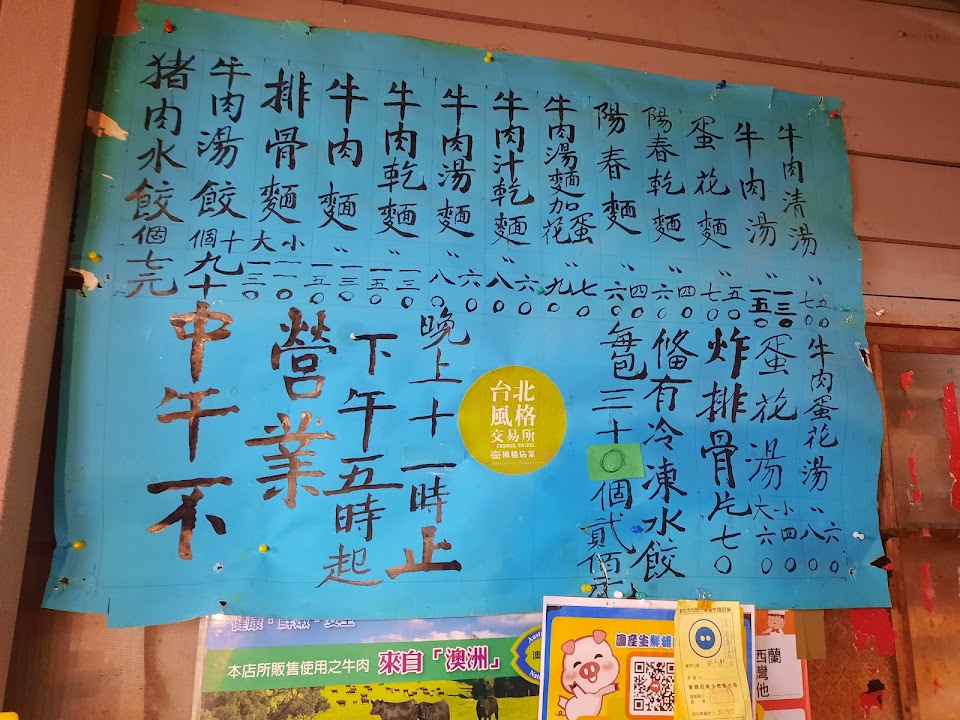 牛肉清湯 〃 五〇 七〇
牛肉湯 〃 一三〇 一五〇
蛋花麵 〃 五〇 七〇
陽春乾麵 〃 四〇 六〇
陽春麵 〃 四〇 六〇
牛肉湯麵加蛋花 〃 七〇 九〇
牛肉汁乾麵 〃 六〇 八〇
牛肉湯麵 〃 六〇 八〇
牛肉乾麵 〃 一三〇 一五〇
牛肉麵 〃 一三〇 一五〇
排骨麵 小一一〇 大一三〇
牛肉湯餃 十個九十
猪肉水餃 個七元
牛肉蛋花湯 〃 六〇 八〇
蛋花湯 小四〇 大六〇
炸排骨片七〇
俻有冷凍水餃
每包三十〇個貳佰
中午不
營業
下午五時起
晚上十一時止
台北
風格
交易所
CHANGE TAIPEI
風格店家
本店所販售使用之牛肉 來自「澳洲」
國產生鮮豬